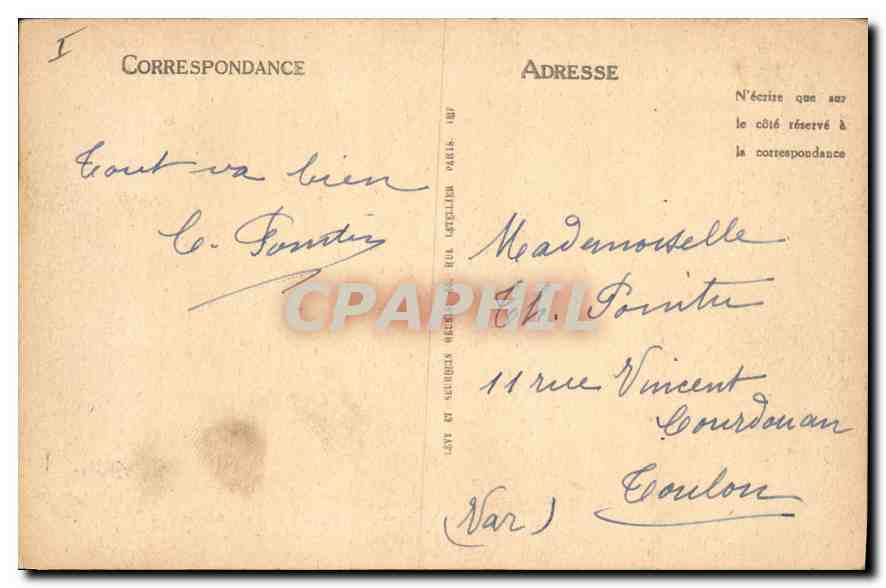 I
CORRESPONDANCE
Tout va bien
ADRESSE
N'écrire que sur
le côté réservé à
la correspondance
Mademoiselle
Th. Pointu
11 rue Vincent
Courdouan
Toulon
(Var)
LEVY ET NEURDEIN RÉUNIS, 44, RUE LETELLIER, PARIS. IMP.
CPAPHIL